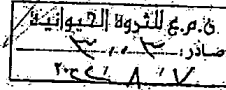 ق.م.ع للثروة الحيوانية
صادر: ٣٠٠٣
٢٠٢٢ / ٨ / ٧